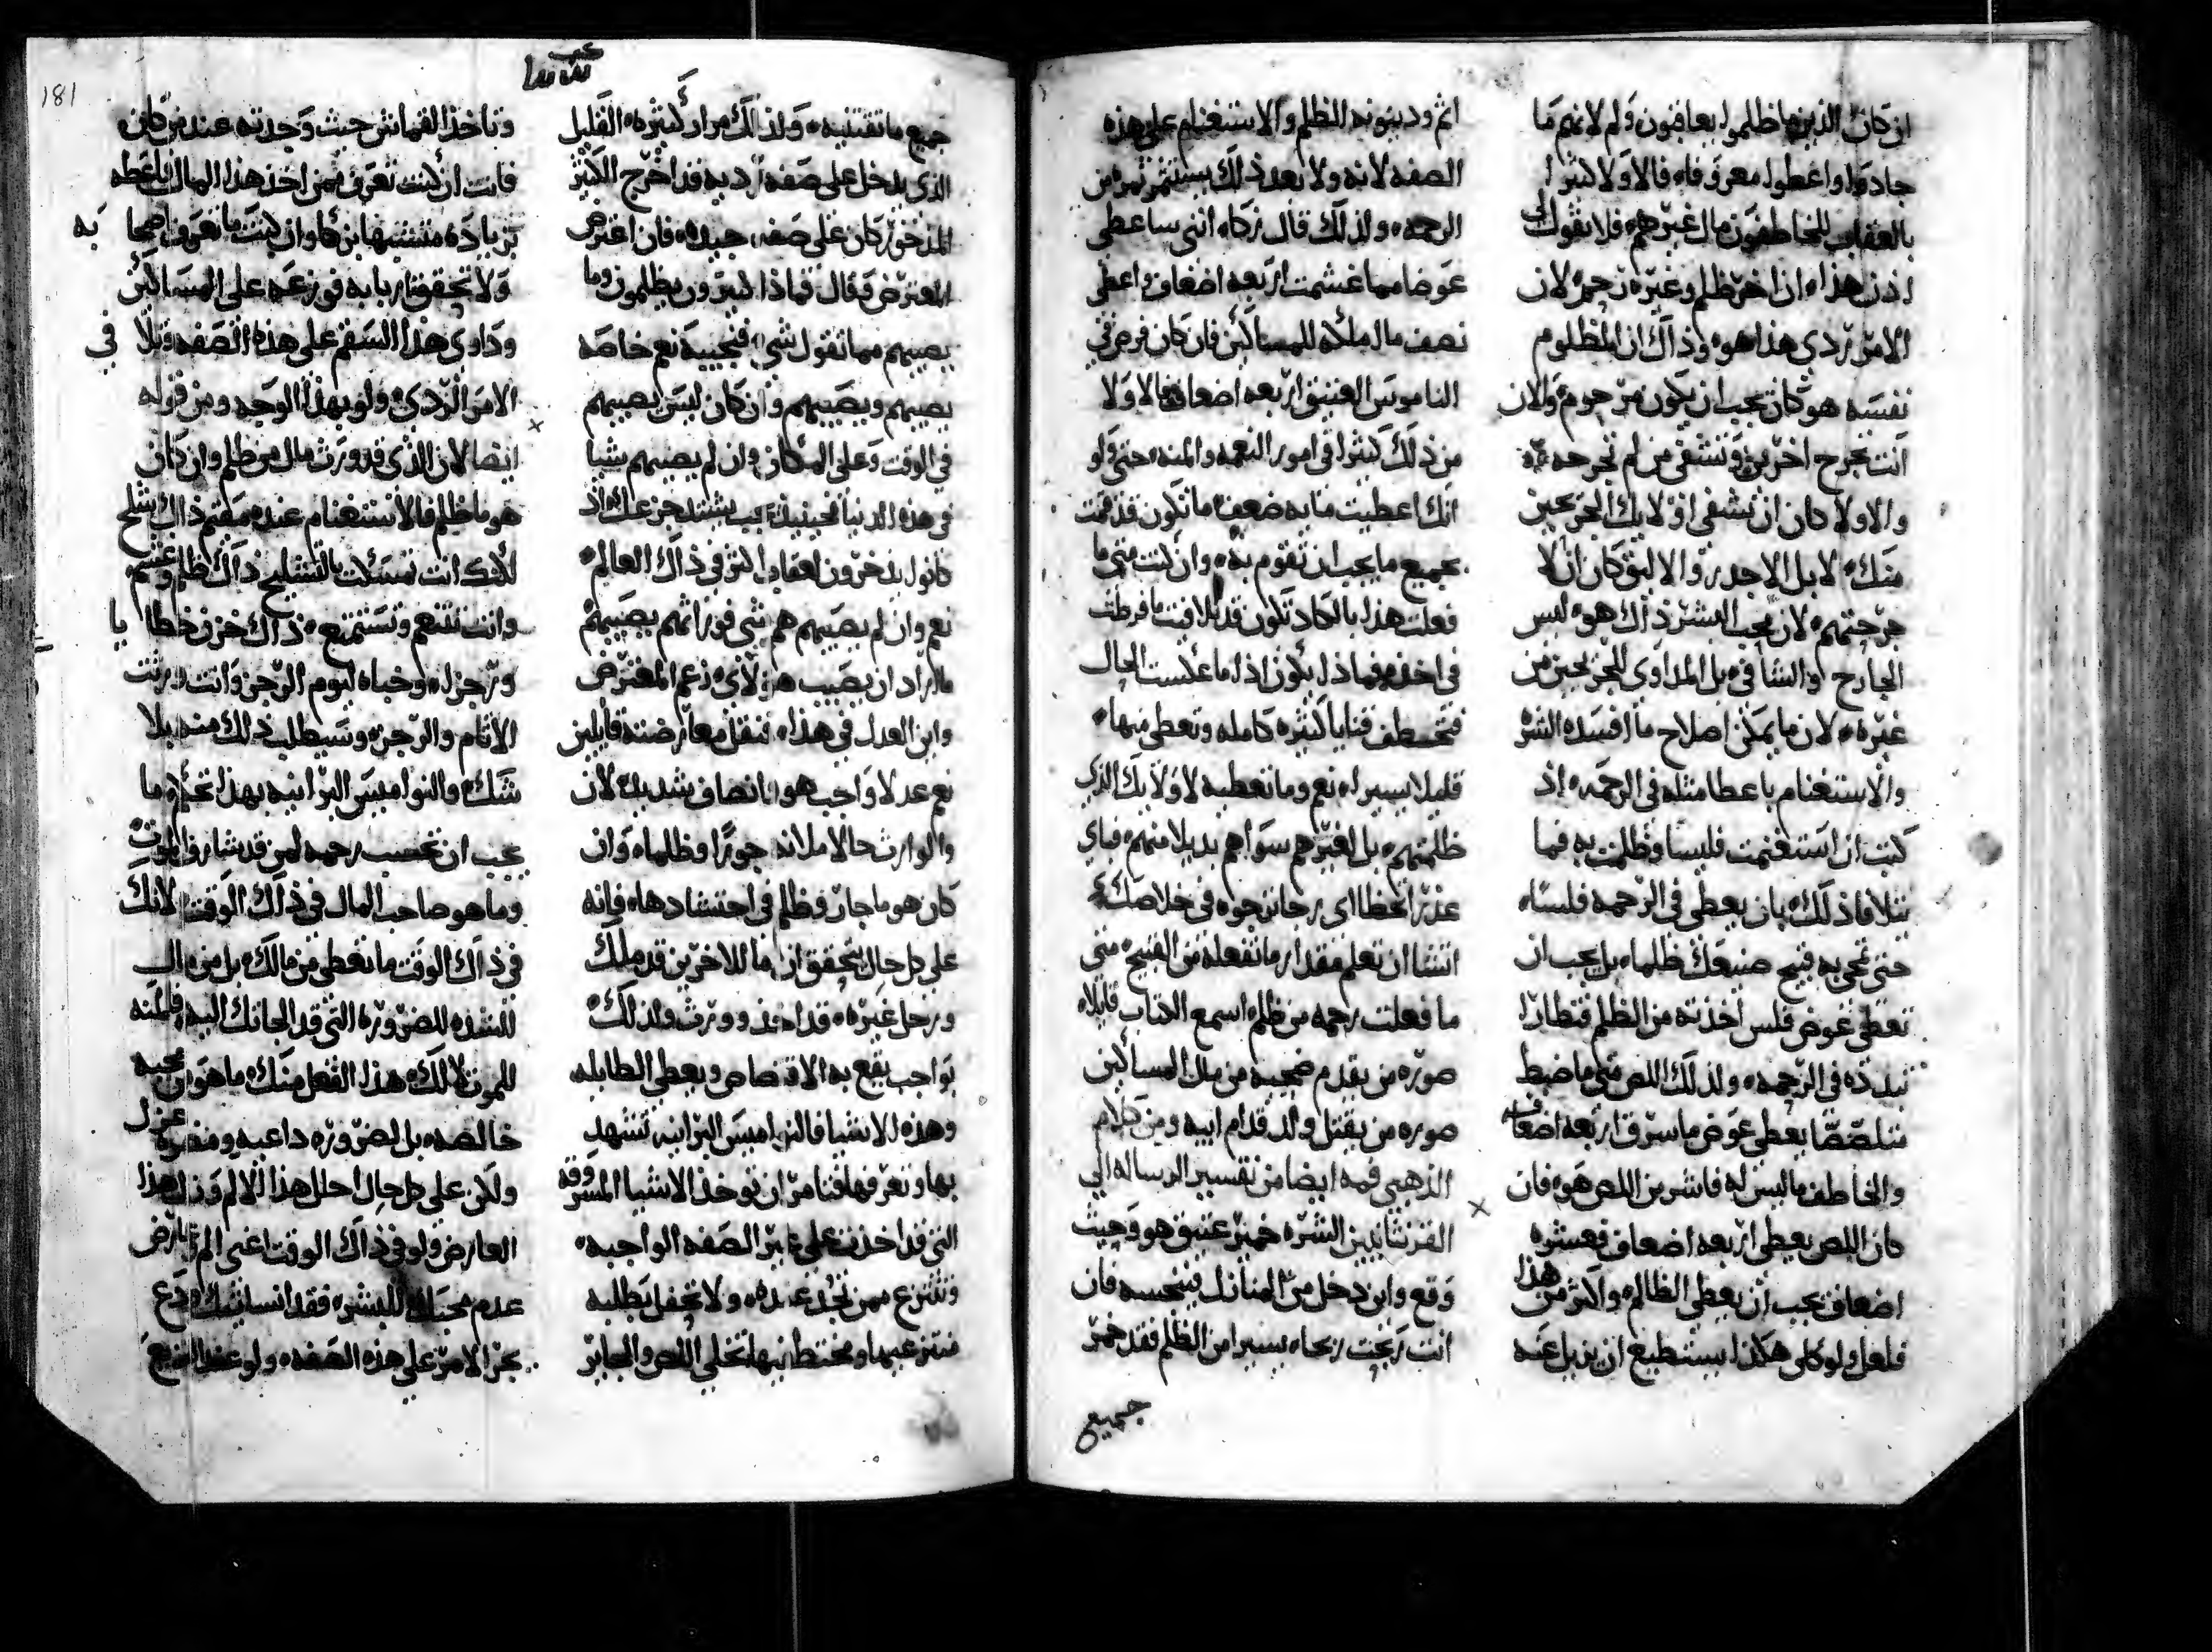 ان كان الذين ما ظلموا يعاقبون ولم لانهم ما
جادوا واعطوا معروفاه فالاولا كثيرا
بالعقاب للخاطفون مال غيرهم فلا تقول
اذن هذا ان اخر ظلم وغيره رحم لان
الامر ردي هذا هو وذاك ان المظلوم
نفسه هو كان يجب ان يكون مرحوم والان
انت تجرح اخرين وتشفي من لم تجرحه
والاولا كان ان تشفي اولايك الجريحين
منك لا بل الاجدر والاليق كان ان لا
جرحتهم لان محب البشر ذاك هو ليس
الجارح والشافي بل المداوي للجريحين من
غيره لان ما يمكن اصلاح ما افسده الشر
والاستغنام باعطا مثله في الرحمه اذ
كنت ان استغنمت فلسا وظلمت به فما
تتلافا ذلك بان يعطي في الرحمه فلسا
حتي تمحي به قبيح صنيعك ظلما بل يجب ان
تعطي عوض فلس اخذته من الظلم قنطارا
تبدده في الرحمه ولذلك اللص متي ما ضبط
متلصصا يعطي عوض ما سرق اربعه اضعاف
والخاطف ما ليس له فاشر من اللص هو فان
كان اللص يعطي اربعه اضعاف فعشره
اضعاف يجب ان يعطي الظالم واكثر من هذا
فلعل ولو كان هكذا يستطيع ان يزيل عنه
اثم ودينونه الظلم والاستغنام علي هذه
الصفه لانه ولا بعد ذلك يستثمر ثمره من
الرحمه ولذلك قال زكاه انني ساعطي
عوضا مما غشمت اربعه اضعاف واعطي
نصف مال ملاه للمساكين فان كان فرض في
الناموس العتيق اربعه اضعاف فالاولا
من ذلك كثيرا في امور النعمه والمنه حتي ولو
انك اعطيت مايه ضعف ما تكون قد قمت
بجميع ما يجب ان تقوم به وان كنت متي ما
فعلت هذا بالكاد تكون قد تلافيت ما فرطت
في اخذه فماذا يكون اذا ما عكست الحال
فتخطف قنايا كثيره كامله وتعطي منها
قليلا يسيرا نعم وما تعطيه لاولايك الذي
ظلمتهم بل لغيرهم سواهم بديلا منهم فباي
عذر تحظا اي رجا ترجوه في خلاصك
اتشا ان تعلم مقدار ما تفعله من القبيح متي
ما فعلت رحمه من ظلم اسمع الكتاب قايلا
صوره من يقدم ضحيه من مال المساكين
صوره من يقتل ولد قدام ابيه ومن كلام
الذهبي فمه ايضا من تفسير الرساله الي
القرنثانيين الشره خمير عتيق هو وحيث
وقع واين دخل من المنازل فينجسه فان
انت ربحت ربحا يسيرا من الظلم فقد خمر
جميع
جميع ما تقتنيه ولذلك مرار كثيره القليل
الذي يدخل علي صفه رديه قد اخرج الكثير
المذخور كان علي صفه جيده فان اعترض
المعترض وقال فماذا كثيرون يظلمون وما
يصيبهم مما تقول شي فنجيبه نعم خاصه
يصيبهم ويصيبهم وان كان ليس يصيبهم
في الوقت وعلي المكان وان لم يصيبهم شيا
في هذه الدنيا فحينيذ يجب يشتد جزعك اذ
كانوا يدخرون لعقاب اكثر في ذاك العالم
نعم وان لم يصيبهم هم شي فورا ثم يصيبهم
ما اراد ان يصيب هولاي زعم المعترض
واين العدل في هذا فنقل معارضته قايلين
نعم عدلا واجب هو وانصاف شديد لان
والوارث حالا ملانه جورا وظلما وان
كان هو ما جار وظلم في احتشادها فانه
علي كل حال يتحقق ان ما للاخرين قد ملك
ورحل غيره قد اخذ وورث ولذلك
بواجب يقع به الاقتصاص ويعطي الطايله
وهذه الاشيا فالنواميس البرانيه تشهد
بها وتعرفها فتامر ان توخذ الاشيا المسروقه
التي قد اخذت علي غير الصفه الواجبه
وتنتزع ممن تجد عنده ولا تحفل بطلبه
منتزعيها ومختطفيها تخلي اللص والجابر
وتاخذ القماش حيث وجدته عند من كان
فانت ان كنت تعرف ممن اخذ هذا المال فاعطه
بزياده متشبها بزكا وان كنت ما تعرف اصحابه
ولا تحقق اربابه فوزعه علي المساكين
وداوي هذا السقم علي هذه الصفه قبلا في
الامر الردي ولو بهذا الوجه ومن قوله
ايضا لان الذي قد ورث مال من ظلم وان كان
هو ما ظلم فالاستغنام عنده مقيم ذاك شلح
لانك انت تمسكت بالتشليح ذاك ظلم وغشم
وانت تتنعم وتستمتع ذاك خزن خطايا
ورجز له وخباه ليوم الرجز وانت ورثت
الاثام والرجز وسيطلب ذلك منه بلا
شك والنواميس البرانيه بهذا تحكم وما
يجب ان تحسب رحمه لمن قد شارف الموت
وما هو صاحب المال في ذلك الوقت لانك
في ذاك الوقت ما تعطي من مالك بل من مال
للشده للضروره التي قد الجاتك اليه فالمنه
للموت لا لك هذا الفعل منك ما هو ان محبه
خالصه بل لضروره داعيه ومضره
ولكن علي كل حال احلل هذا الالم وزل هذا
العارض ولو في ذاك الوقت اعني المرض
عدم محبتك للبشر فقد انسانيتك ودع
يجز الامر علي هذه الصفه ولو عند النزع